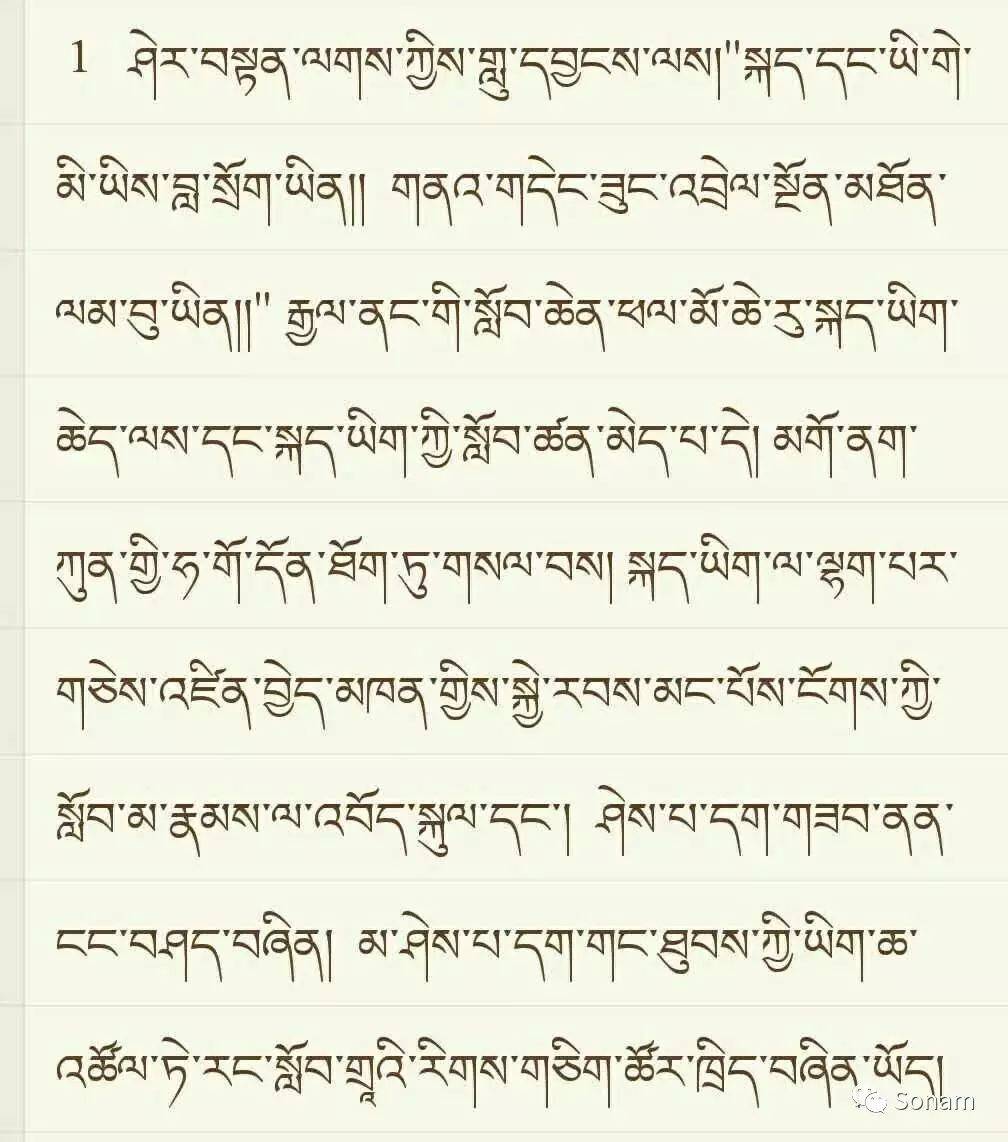 1 ཤེར་བསྟན་ལགས་ཀྱིས་གླུ་དབྱངས་ལས།"སྐད་དང་ཡི་གེ་
མི་ཡིས་བླ་སྲོག་ཡིན།། གནའ་གདེང་ཟུང་འབྲེལ་སྔོན་མཐོན་
ལམ་བུ་ཡིན།།" རྒྱལ་ནང་གི་སློབ་ཆེན་ཕལ་མོ་ཆེ་རུ་སྐད་ཡིག་
ཆེད་ལས་དང་སྐད་ཡིག་ཀྱི་སློབ་ཚན་མེད་པ་དེ། མགོ་ནག་
ཀུན་གྱི་ཧ་གོ་དོན་ཐོག་ཏུ་གསལ་བས། སྐད་ཡིག་ལ་ལྷག་པར་
གཅེས་འཛིན་བྱེད་མཁན་གྱིས་སྐྱེ་རབས་མང་པོས་ངོགས་ཀྱི་
སློབ་མ་རྣམས་ལ་འབོད་སྐུལ་དང་། ཤེས་པ་དག་གཟབ་ནན་
ངང་བཤད་བཞིན། མ་ཤེས་པ་དག་གང་ཐུབས་ཀྱི་ཡིག་ཆ་
འཚོལ་ཏེ་རང་སློབ་གྲྭའི་རིགས་གཅིག་ཚོར་ཁྲིད་བཞིན་ཡོད།
Sonam